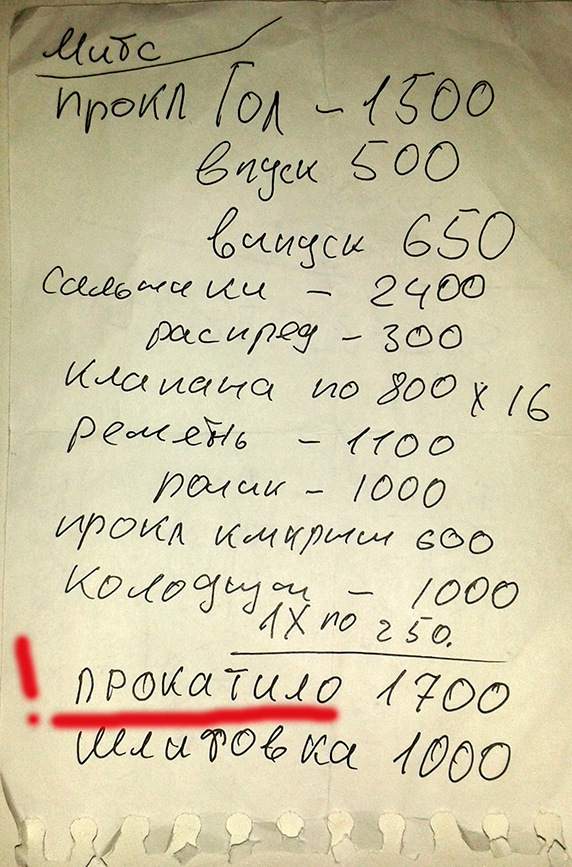 Митс
прокл Гол - 1500
впуск 500
випуск 650
сальники - 2400
распред - 300
клапана по 800 х 16
ремень - 1100
ролик - 1000
прокл 600
Колодцы - 1000
1Х по 250.
! ПРОКАТИЛО 1700
Шлифовка 1000